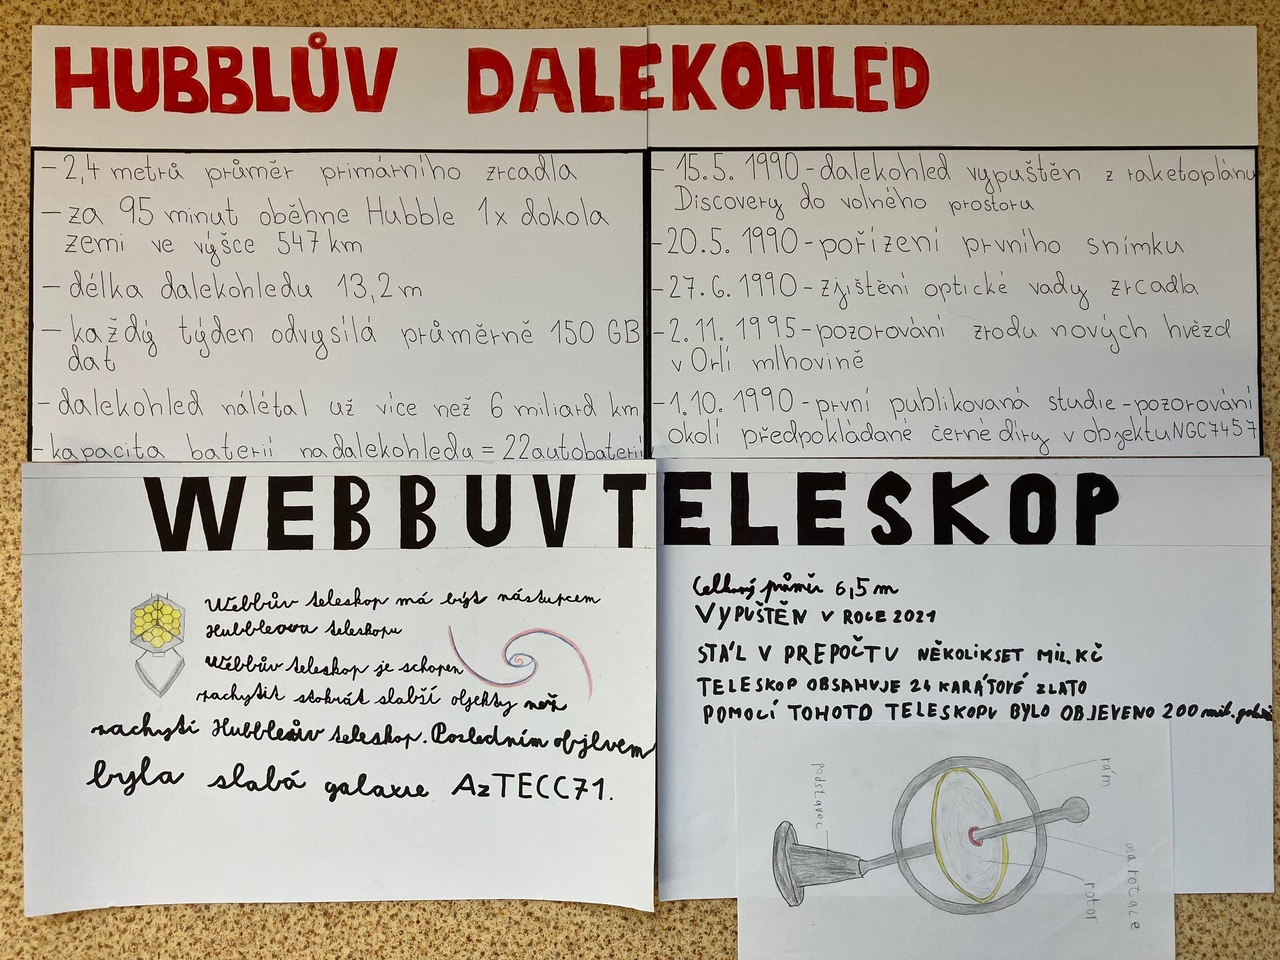 HUBBLŮV DALEKOHLED
- 2,4 metrů průměr primárního zrcadla
- za 95 minut oběhne Hubble 1x dokola
zemi ve výšce 547 km
- délka dalekohledu 13,2 m
- každý týden odvysílá průměrně 150 GB
dat
- dalekohled nálétal už více než 6 miliard km
- kapacita baterií na dalekohledu = 22 autobaterií
- 15.5. 1990 - dalekohled vypuštěn z raketoplánu
Discovery do volného prostoru
- 20.5. 1990 - pořízení prvního snímku
- 27.6. 1990 - zjištění optické vady zrcadla
- 2.11. 1995 - pozorování zrodu nových hvězd
v Orlí mlhovině
- 1.10. 1990 - první publikovaná studie - pozorování
okolí předpokládané černé díry v objektu NGC 7457
WEBBUV TELESKOP
Webbův teleskop má být nástupcem
Hubbleova teleskopu
Webbův teleskop je schopen
zachytit stokrát slabší objekty než
zachytí Hubbleův teleskop. Posledním objevem
byla slabá galaxie AzTECC71.
Celkový průměr 6,5 m
VYPUŠTĚN V ROCE 2021
STÁL V PREPOČTU NĚKOLIKSET MIL. KČ
TELESKOP OBSAHUJE 24 KARÁTOVÉ ZLATO
POMOCÍ TOHOTO TELESKOPU BYLO OBJEVENO 200 mil.
podstavec
rám
osa rotace
rotor